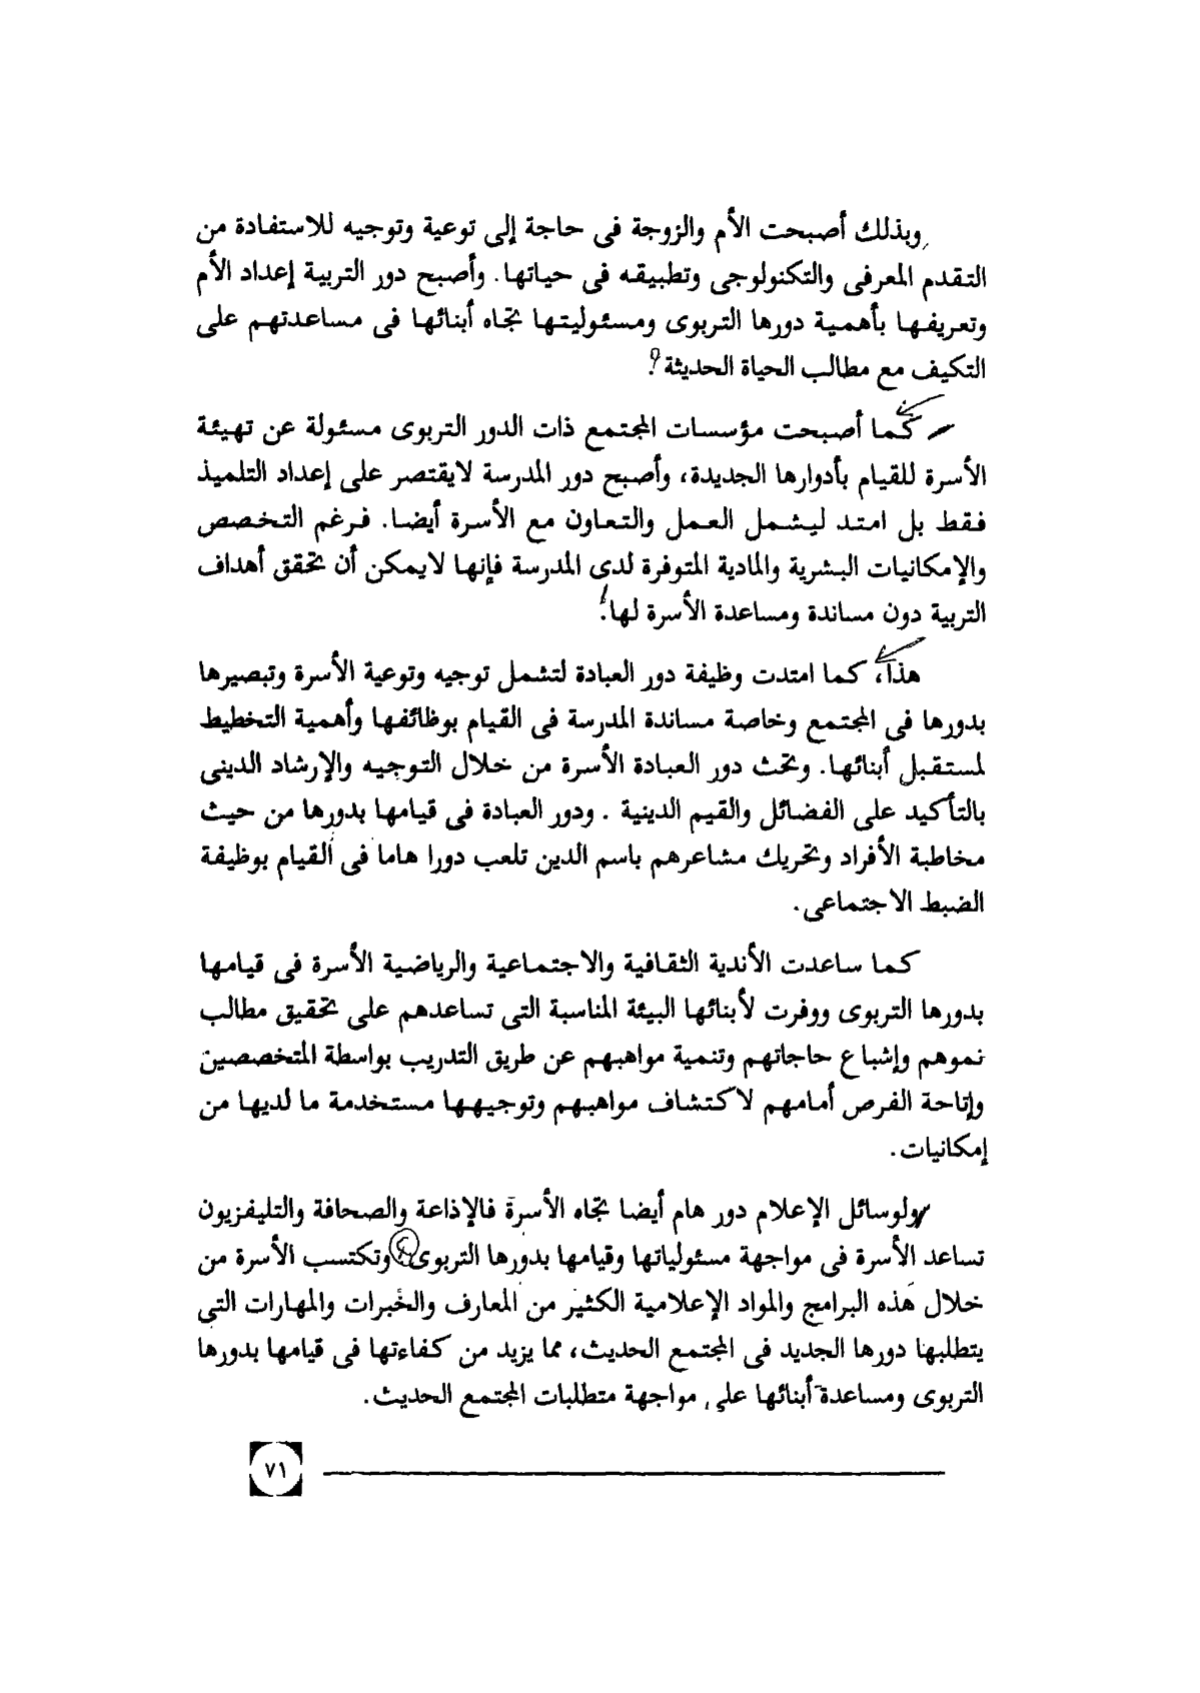 وبذلك أصبحت الأم والزوجة فى حاجة إلى توعية وتوجيه للاستفادة من
التقدم المعرفى والتكنولوجى وتطبيقه فى حياتها. وأصبح دور التربية إعداد الأم
وتعريفها بأهمية دورها التربوى ومسئوليتها تجاه أبنائها فى مساعدتهم على
التكيف مع مطالب الحياة الحديثة؟
كما أصبحت مؤسسات المجتمع ذات الدور التربوى مسئولة عن تهيئة
الأسرة للقيام بأدوارها الجديدة، وأصبح دور المدرسة لايقتصر على إعداد التلميذ
فقط بل امتد ليشمل العمل والتعاون مع الأسرة أيضا. فرغم التخصص
والإمكانيات البشرية والمادية المتوفرة لدى المدرسة فإنها لايمكن أن تحقق أهداف
التربية دون مساندة ومساعدة الأسرة لها.
هذا، كما امتدت وظيفة دور العبادة لتشمل توجيه وتوعية الأسرة وتبصيرها
بدورها فى المجتمع وخاصة مساندة المدرسة فى القيام بوظائفها وأهمية التخطيط
لمستقبل أبنائها. وتحث دور العبادة الأسرة من خلال التوجيه والإرشاد الدينى
بالتأكيد على الفضائل والقيم الدينية . ودور العبادة فى قيامها بدورها من حيث
مخاطبة الأفراد وتحريك مشاعرهم باسم الدين تلعب دورا هاما فى القيام بوظيفة
الضبط الاجتماعى.
كما ساعدت الأندية الثقافية والاجتماعية والرياضية الأسرة فى قيامها
بدورها التربوى ووفرت لأبنائها البيئة المناسبة التى تساعدهم على تحقيق مطالب
نموهم وإشباع حاجاتهم وتنمية مواهبهم عن طريق التدريب بواسطة المتخصصين
وإتاحة الفرص أمامهم لاكتشاف مواهبهم وتوجيهها مستخدمة ما لديها من
إمكانيات.
ولوسائل الإعلام دور هام أيضا تجاه الأسرة فالإذاعة والصحافة والتليفزيون
تساعد الأسرة فى مواجهة مسئولياتها وقيامها بدورها التربوى وتكتسب الأسرة من
خلال هذه البرامج والمواد الإعلامية الكثير من المعارف والخبرات والمهارات التى
يتطلبها دورها الجديد فى المجتمع الحديث، مما يزيد من كفاءتها فى قيامها بدورها
التربوى ومساعدة أبنائها على مواجهة متطلبات المجتمع الحديث.
٧١